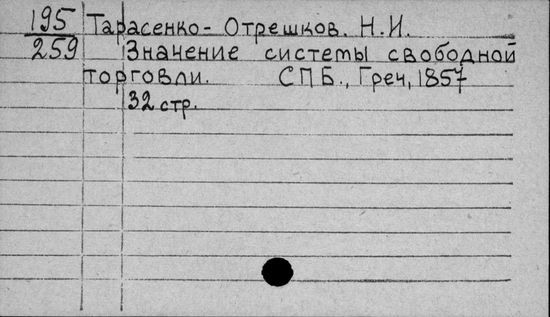 195 Тарасенко-Отрешков. Н.И.
259 Значение системы свободной
торговли. СПБ., Греч, 1857
32 стр.